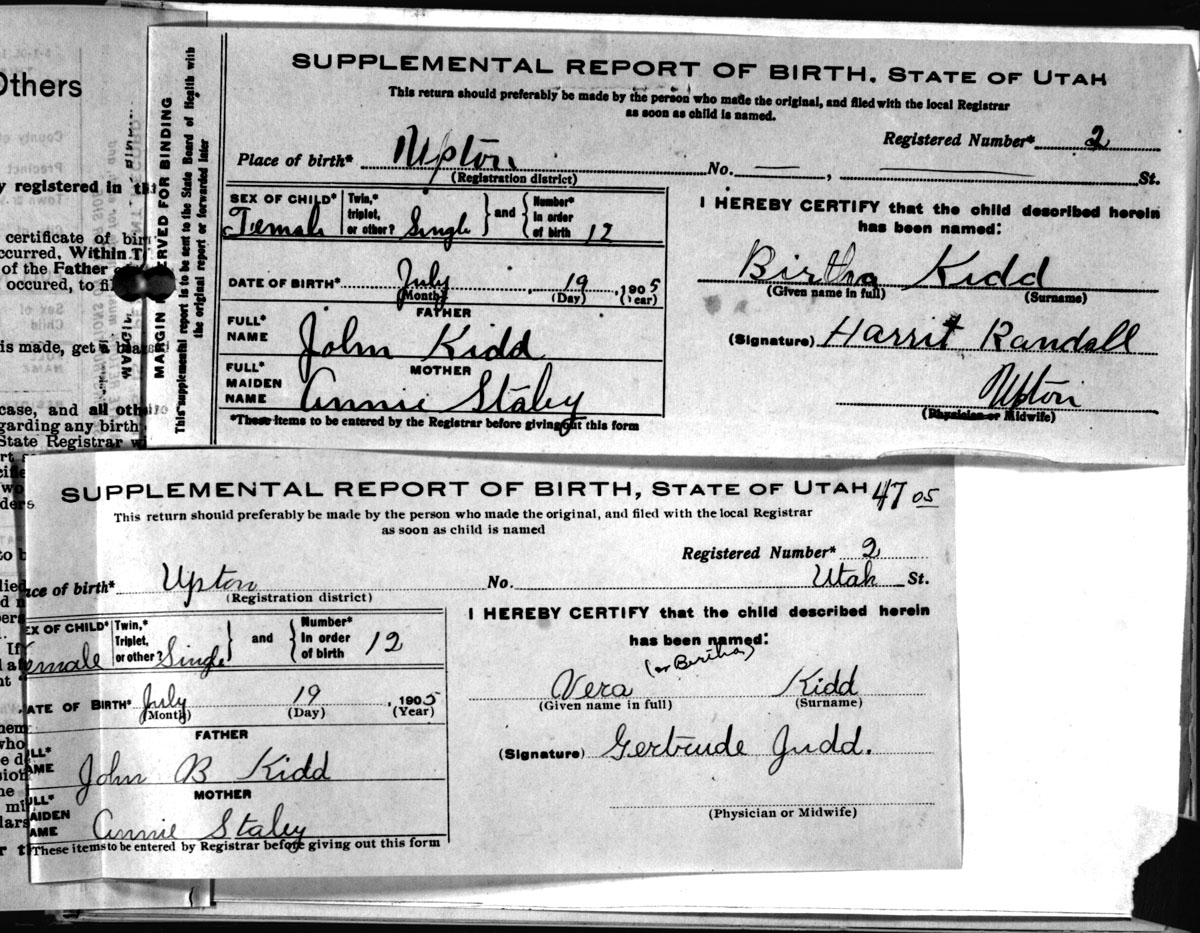 Others
y registered in th
certificate of birt
ccurred, Within T
of the Father
occured, to fi
is made, get a bla
case, and all oth
garding any birth
State Registrar w
MARGIN RESERVED FOR BINDING
This supplemental report is to be sent to the State Board of Health with
the original report or forwarded later
SUPPLEMENTAL REPORT OF BIRTH, STATE OF UTAH
This return should preferably be made by the person who made the original, and filed with the local Registrar
as soon as child is named.
Registered Number* 2
Place of birth* Upton No. — , — St.
(Registration district)
SEX OF CHILD* Female
Twin,* triplet, or other? Single
and
Number* in order of birth 12
DATE OF BIRTH July 19, 1905
(Month) (Day) (Year)
FATHER
FULL* NAME John Kidd
MOTHER
FULL* MAIDEN NAME Annie Staley
*These items to be entered by the Registrar before giving out this form
I HEREBY CERTIFY that the child described herein
has been named:
Birtha Kidd
(Given name in full) (Surname)
(Signature) Harrit Randall
Upton
(Physician or Midwife)
SUPPLEMENTAL REPORT OF BIRTH, STATE OF UTAH 47 05
This return should preferably be made by the person who made the original, and filed with the local Registrar
as soon as child is named
Registered Number* 2
ace of birth* Upton No. Utah St.
(Registration district)
EX OF CHILD* emale
Twin,* Triplet, or other? Single
and
Number* In order of birth 12
ATE OF BIRTH* July 19, 1905
(Month) (Day) (Year)
FATHER
ULL* AME John B Kidd
MOTHER
ULL* AIDEN AME Annie Staley
These items to be entered by Registrar before giving out this form
I HEREBY CERTIFY that the child described herein
has been named:
(or Bertha)
Vera Kidd
(Given name in full) (Surname)
(Signature) Gertrude Judd.
(Physician or Midwife)